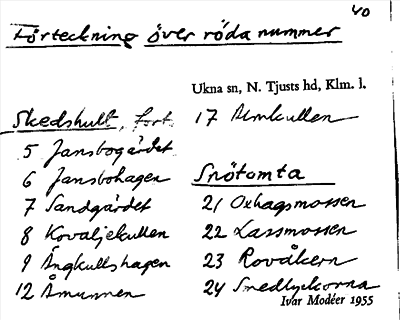 40
Förteckning över röda nummer
Ukna sn, N. Tjusts hd, Klm. l.
Skedshult, fort.
5 Jansbogärdet
6 Jansbohagen
7 Sandgärdet
8 Kovaljekullen
9 Ångkullshagen
12 Åmunnen
17 Almkullen
Snötomta
21 Oxhagsmossen
22 Lassmossen
23 Rovåkern
24 Smedlyckorna
Ivar Modéer 1955